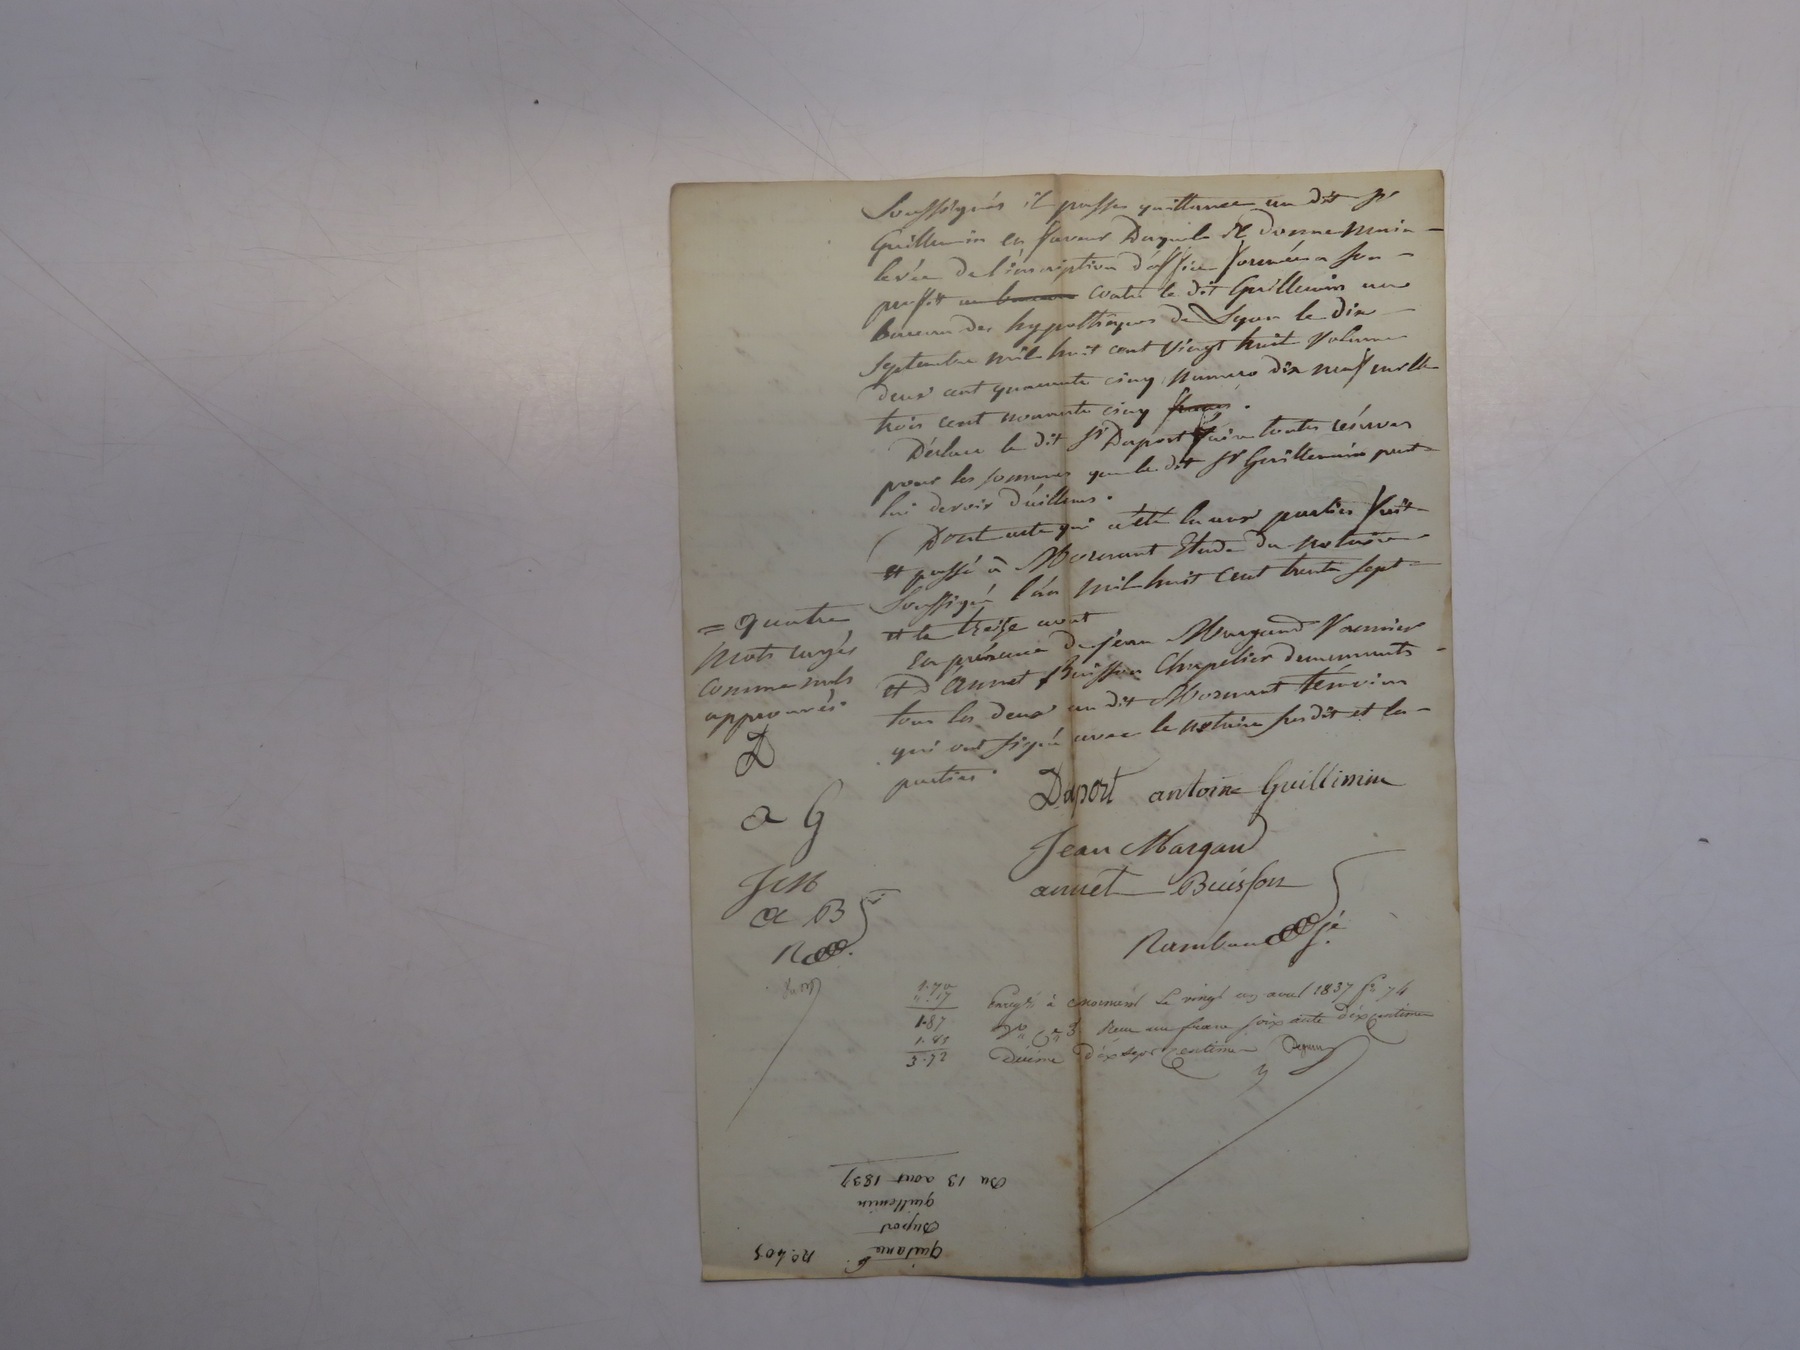 Soussignés il passe quittance au dit Sr
Guillemin en faveur Duquel il donne main
levée de l'inscription d'office formée a son
proffit au bureau contre le dit Guillemin au
bureau des hypothèques de Lyon le dix
Septembre mil huit cent vingt huit Volume
deux cent quarante cinq numero dix neuf mille
trois cent nonante cinq francs.
Déclare le dit Sr Duport faire toutes réserves
pour les sommes que le dit Sr Guillemin peut
lui devoir d'ailleurs.
Dont acte qui a été lu aux parties fait
et passé à Mornant Etude du notaire
Soussigné l'an mil huit cent trente sept
et le treize aout
En présence de jean Margand Vannier
et d'Annet Buisson Chapelier demeurants
tous les deux au dit Mornant témoins
qui ont signé avec le notaire susdit et les
parties.
= quatre
mots rayés
comme nuls
approuvés.
D
a G
J M
a B
R
Duport antoine Guillimin
Jean Margand
annet Buisson
Rambaud
1.70
".17
1.87
1.85
3.72
Enregté à Mornant le vingt un aout 1837 fo 74
Vo Ce 3 Reçu un franc soixante dix centimes
décime dix sept centimes
No. 405
Quitance
Duport
guillemin
Du 13 aout 1837